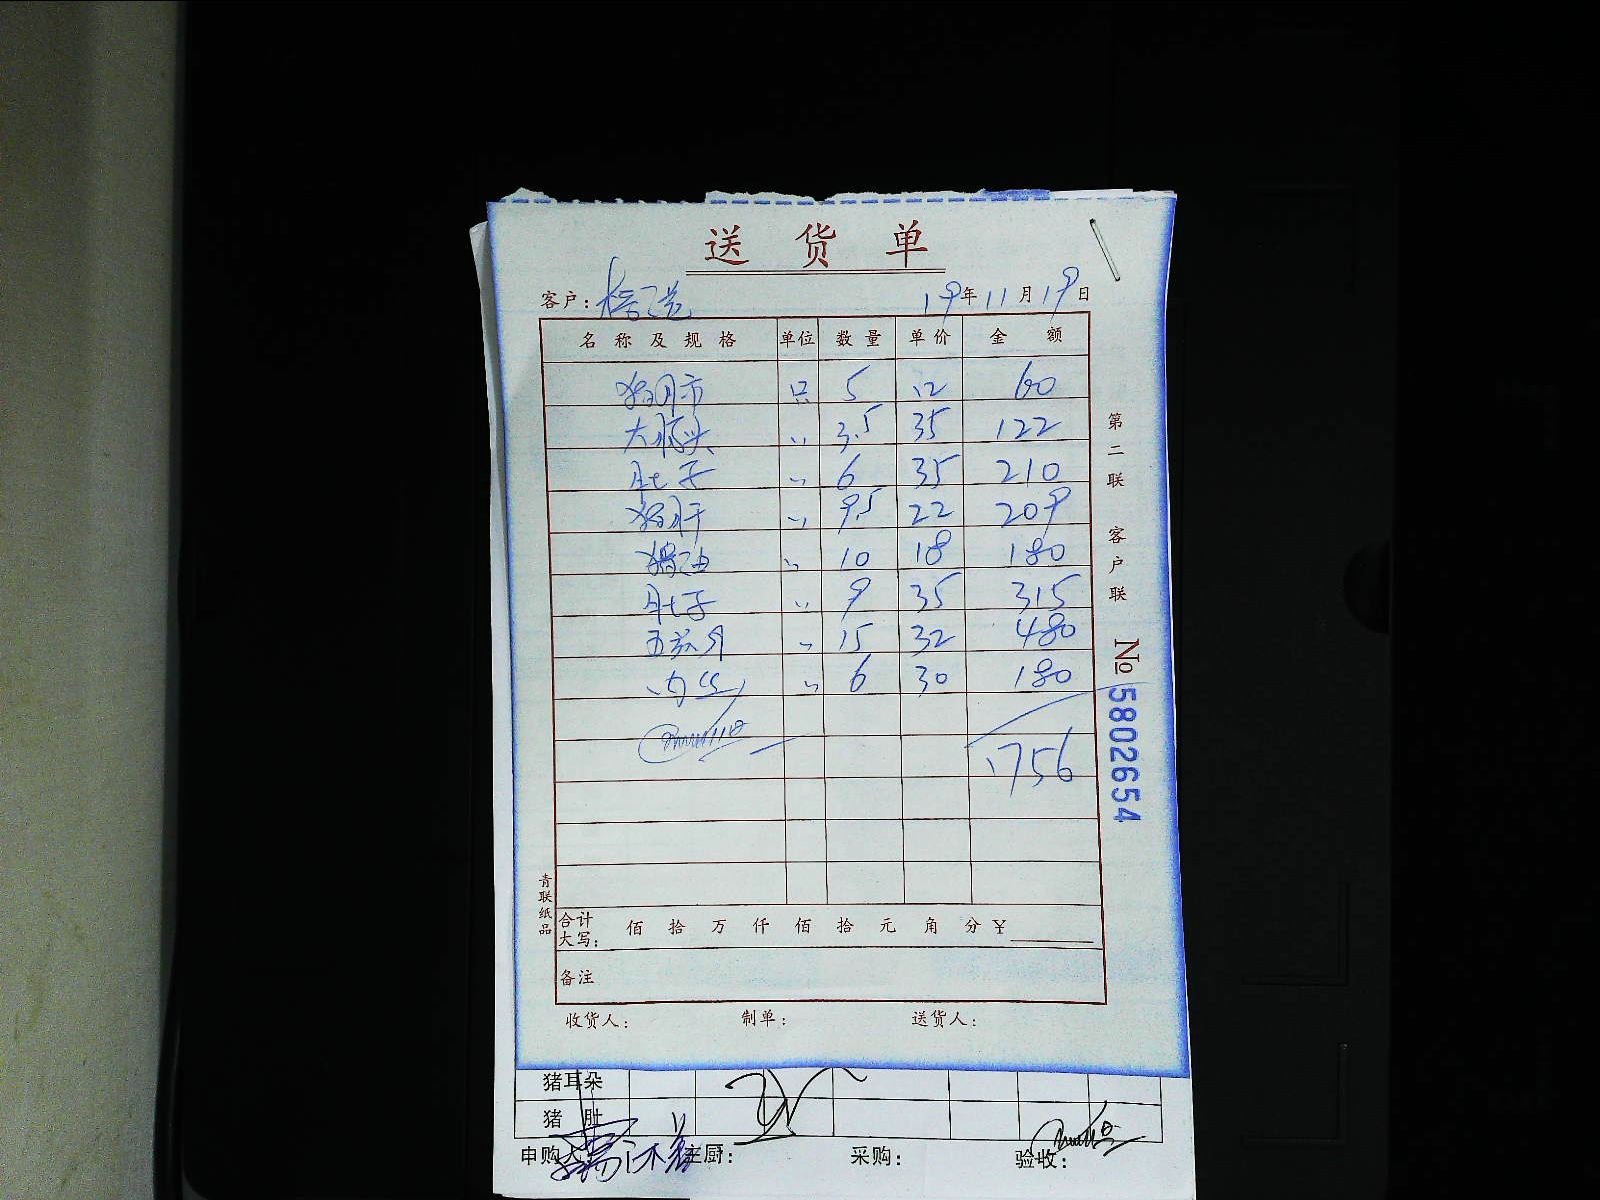 送货单
客户: 19年11月19日
名称及规格 单位 数量 单价 金额
猪肺 只 5 12 60
大肠头 〃 3.5 35 122
肚子 〃 6 35 210
猪肝 〃 9.5 22 209
猪油 〃 10 18 180
肚子 〃 9 35 315
五花肉 〃 15 32 480
肉丝 〃 6 30 180
1756
合计大写: 佰 拾 万 仟 佰 拾 元 角 分 ¥
备注
收货人: 制单: 送货人:
第二联 客户联 No 5802654
青联纸品
猪耳朵
猪肚
申购 主厨: 采购: 验收: